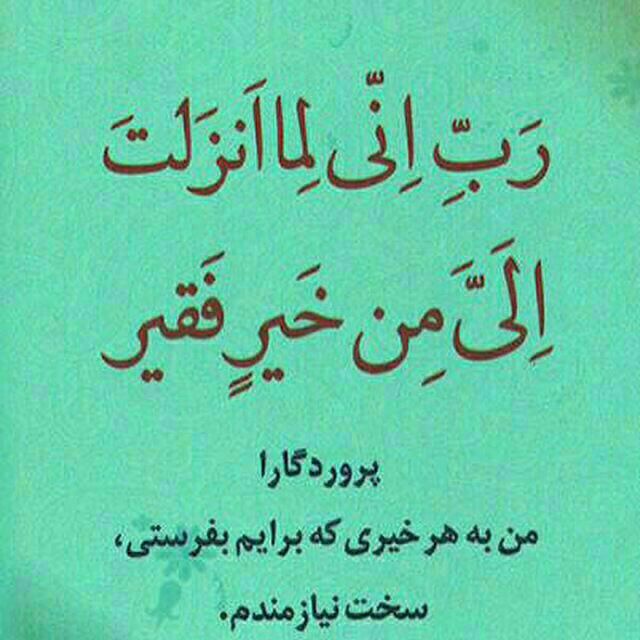 رَبِّ اِنّی لِما اَنزَلتَ
اِلَیَّ مِن خَیرٍ فَقیر
پروردگارا
من به هر خیری که برایم بفرستی،
سخت نیازمندم.